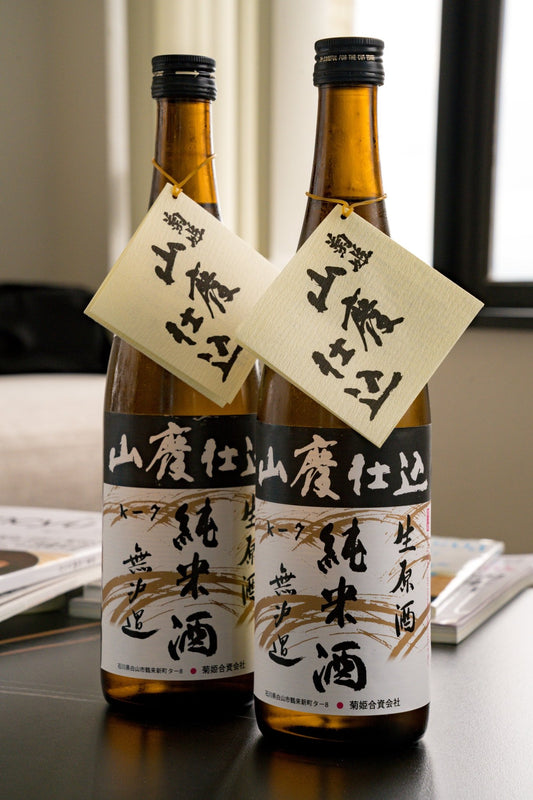 菊姫
山廃仕込
菊姫
山廃仕込
山廃仕込
純米酒
無濾過
生原酒
石川県白山市鶴来新町タ-8 ● 菊姫合資会社
山廃仕込
生原酒
純米酒
無濾過
石川県白山市鶴来新町タ-8 ● 菊姫合資会社